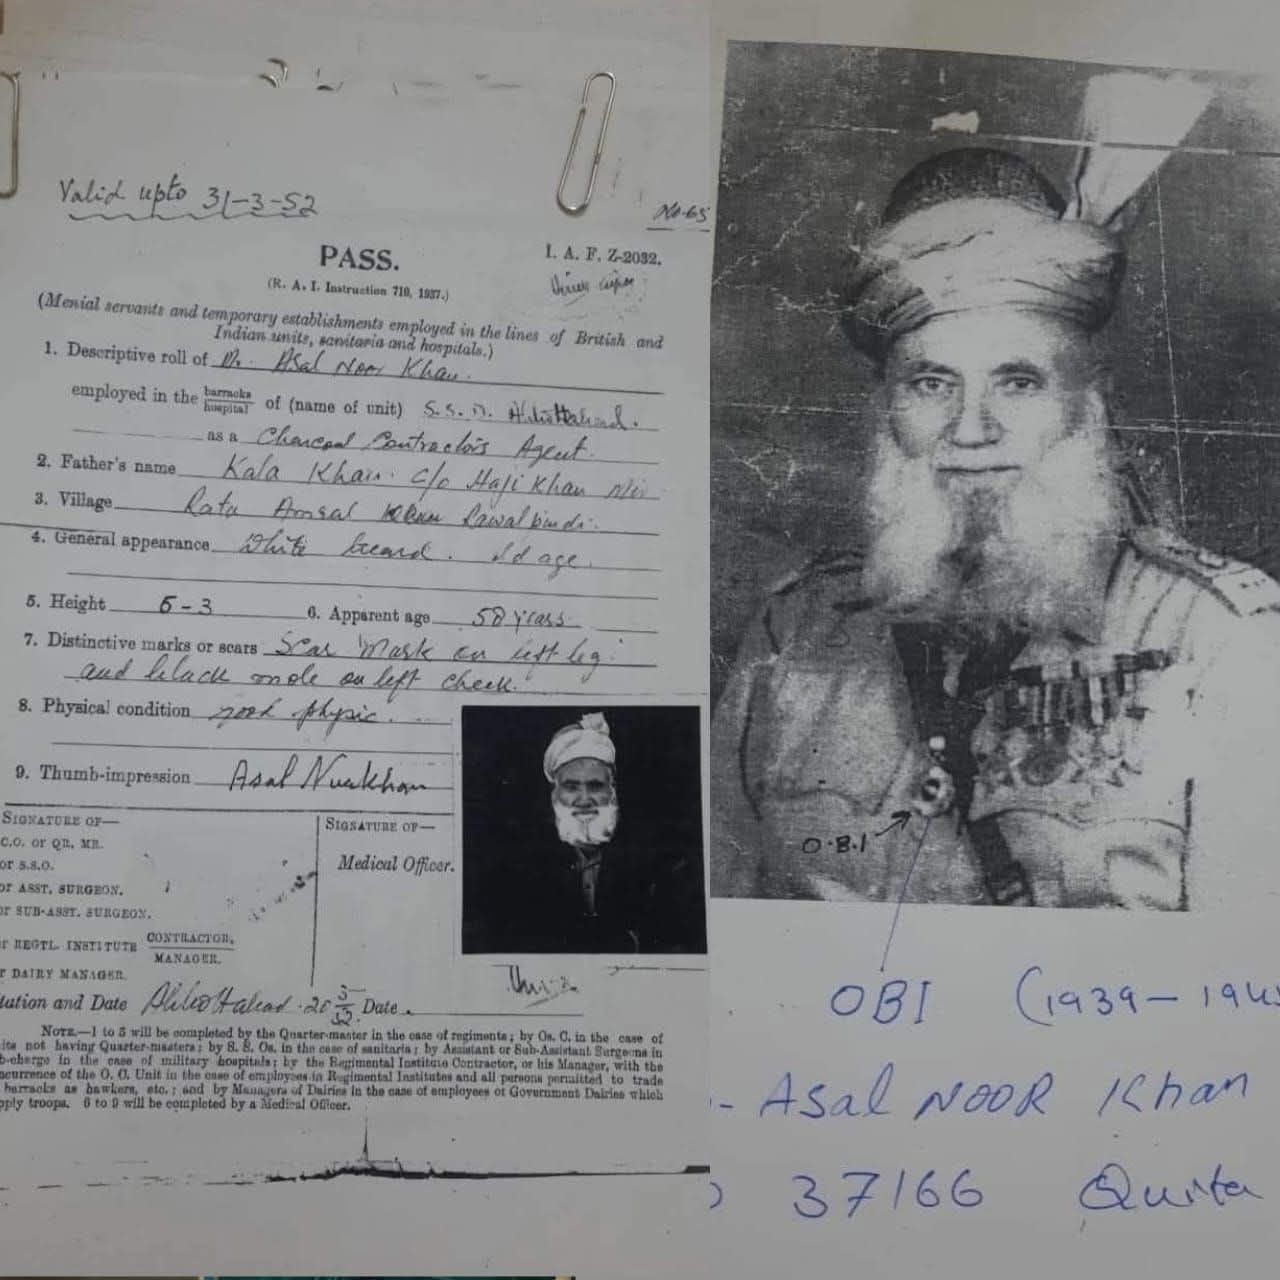 Valid upto 31-3-52
No-65
PASS.
I. A. F. Z-2032.
(R. A. I. Instruction 710, 1937.)
(Menial servants and temporary establishments employed in the lines of British and
Indian units, sanitaria and hospitals.)
1. Descriptive roll of Asal Noor Khan.
employed in the barracks/hospital of (name of unit) S.S.D.
as a Charcoal Contractor's Agent.
2. Father's name Kala Khan. C/o Haji Khan
3. Village Amral Rawalpindi.
4. General appearance White beard. old age.
5. Height 5-3 6. Apparent age 58 years
7. Distinctive marks or scars Scar Mark on left leg.
and black mole on left cheek.
8. Physical condition good physic.
9. Thumb-impression Asal
SIGNATURE OF—
C.O. OR QR. MR.
or S.S.O.
or ASST. SURGEON.
or SUB-ASST. SURGEON.
r REGTL. INSTITUTE CONTRACTOR,
MANAGER.
r DAIRY MANAGER.
SIGNATURE OF—
Medical Officer.
tation and Date 20 Date
NOTE.—1 to 5 will be completed by the Quarter-master in the case of regiments; by Os. C. in the case of
its not having Quarter-masters; by S. S. Os. in the case of sanitaria; by Assistant or Sub-Assistant Surgeons in
b-charge in the case of military hospitals; by the Regimental Institute Contractor, or his Manager, with the
ncurrence of the O. C. Unit in the case of employees in Regimental Institutes and all persons permitted to trade
barracks as hawkers, etc.; and by Managers of Dairies in the case of employees of Government Dairies which
pply troops. 6 to 9 will be completed by a Medical Officer.
O.B.I
OBI (1939-194
- Asal NOOR Khan
37166 Quita